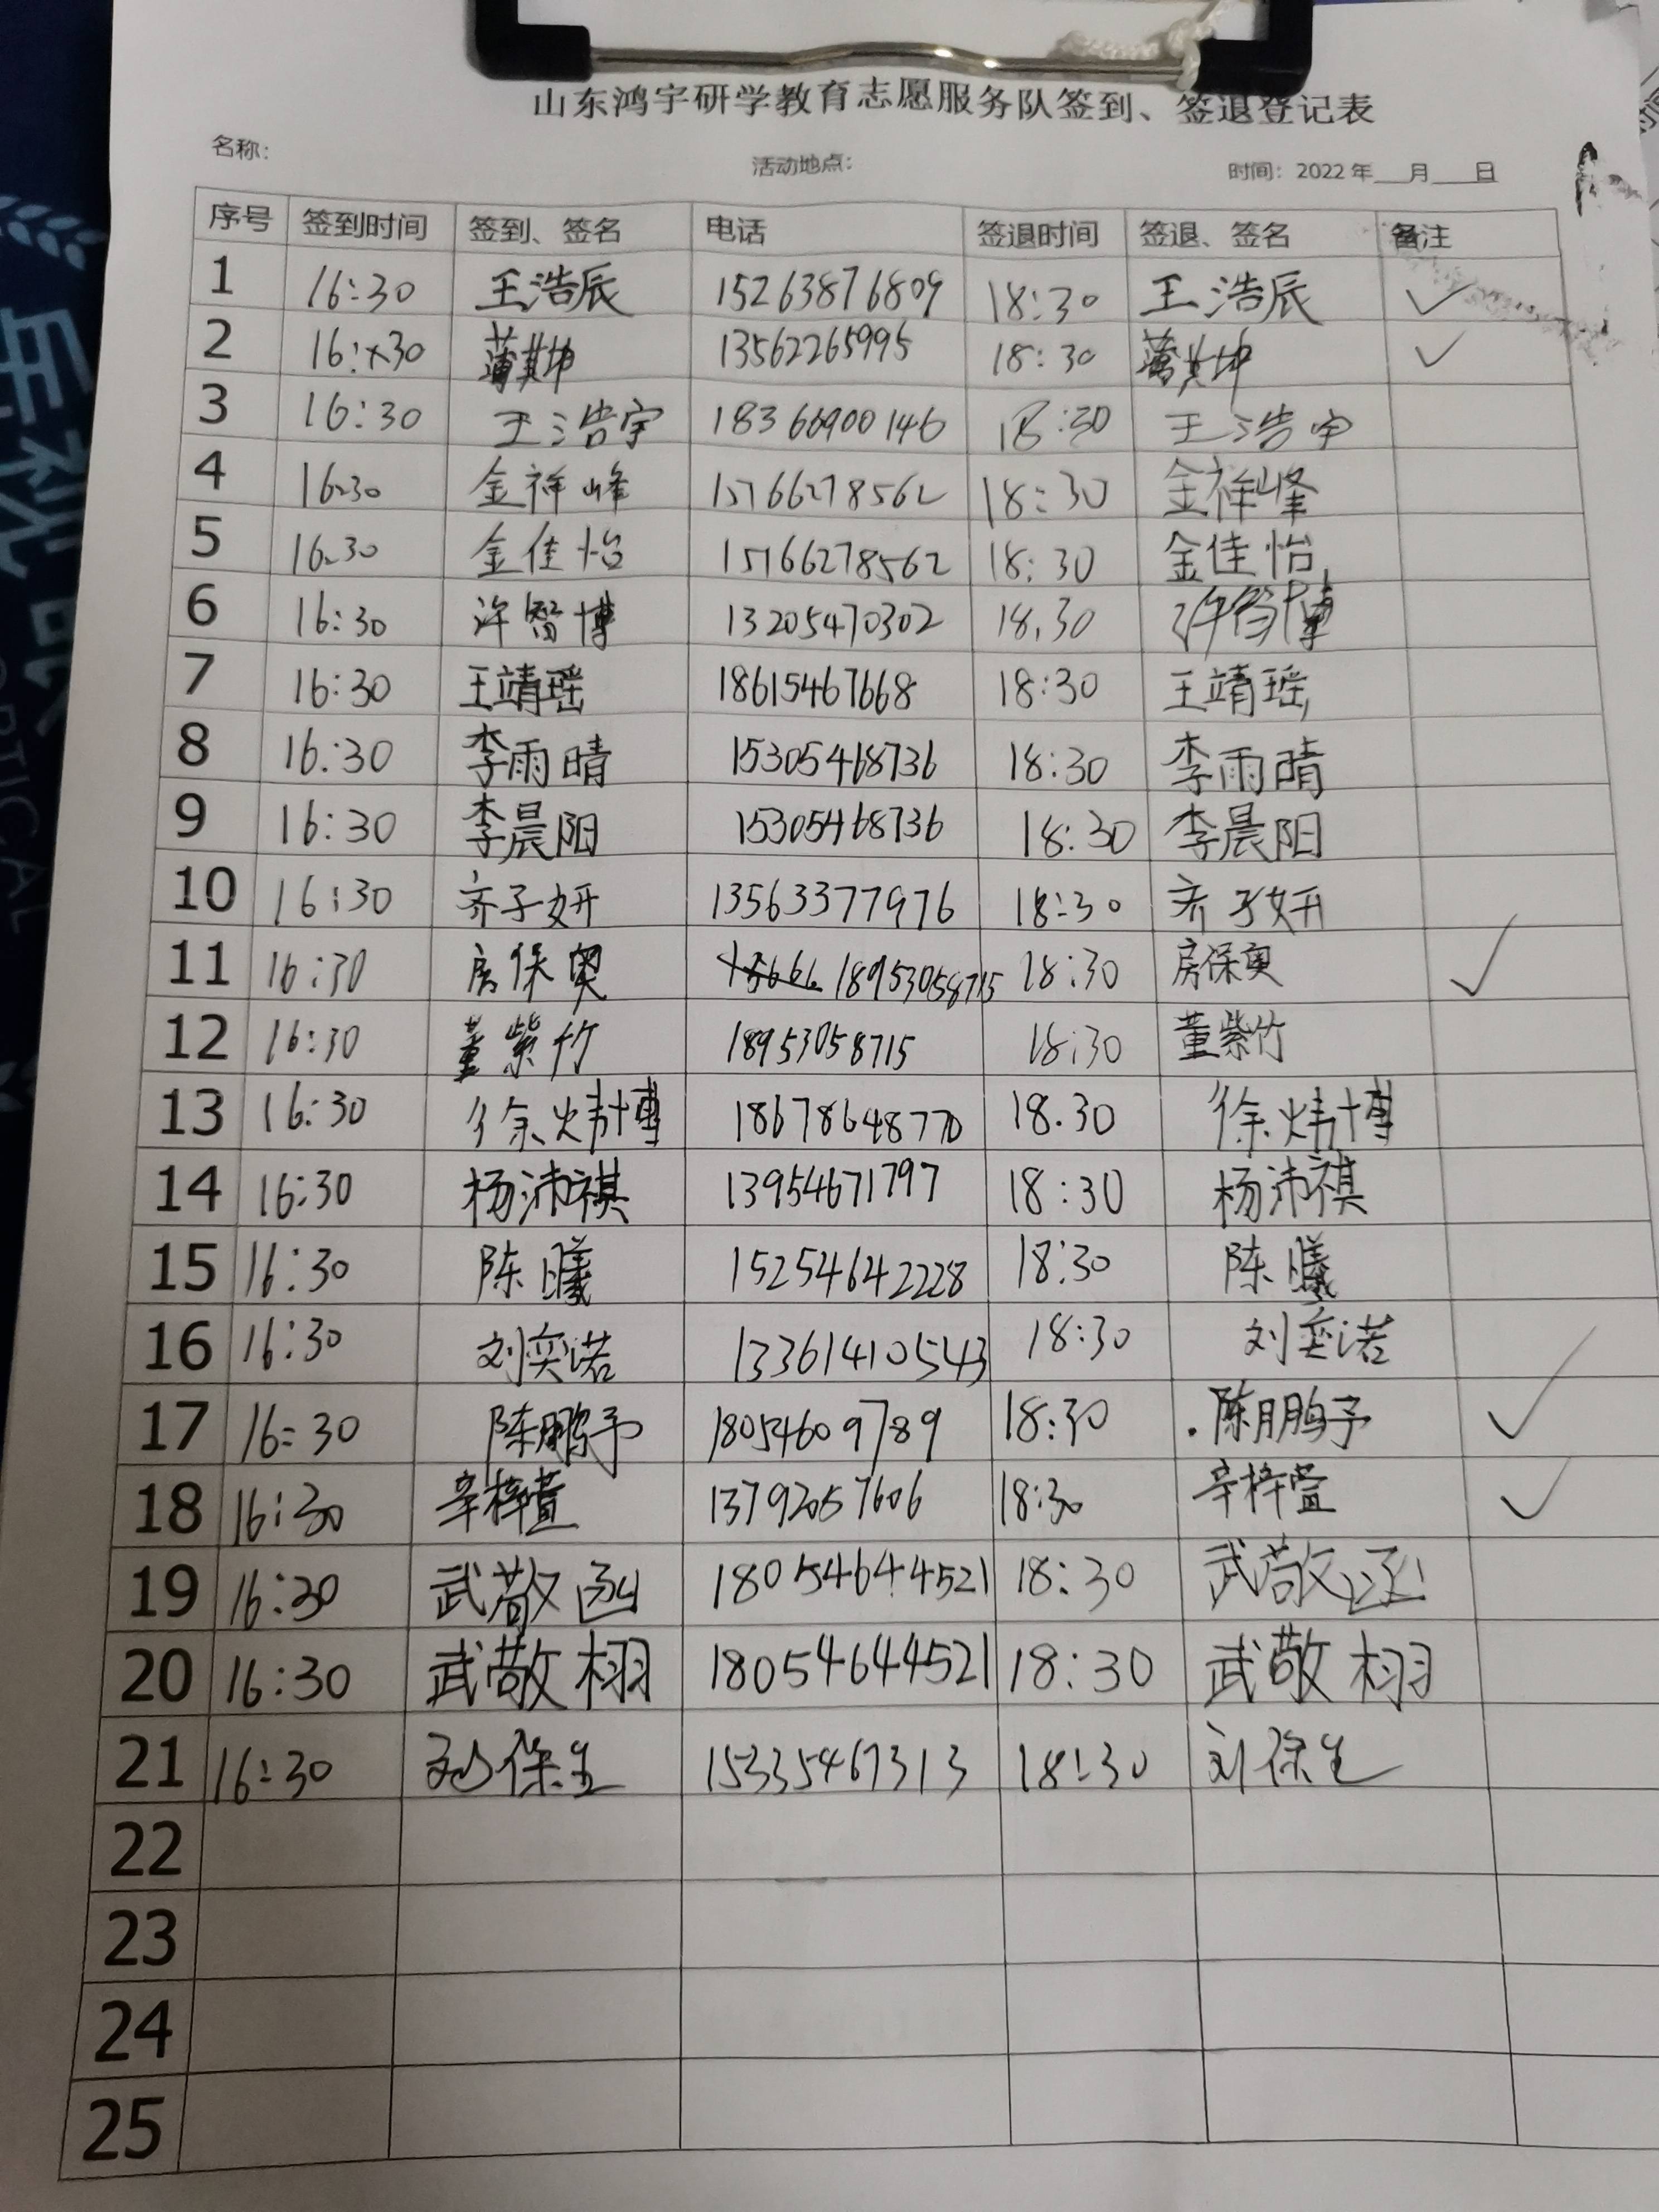 山东鸿宇研学教育志愿服务队签到、签退登记表
名称： 活动地点： 时间：2022年___月___日
序号 签到时间 签到、签名 电话 签退时间 签退、签名 备注
1 16:30 王浩辰 15263876809 18:30 王浩辰 ✓
2 16:30 13562265995 18:30 ✓
3 16:30 王浩宇 18366900146 18:30 王浩宇
4 16:30 金祥峰 15766278562 18:30 金祥峰
5 16:30 金佳怡 15766278562 18:30 金佳怡
6 16:30 许智博 13205470302 18.30 许智博
7 16:30 王靖瑶 18615467668 18:30 王靖瑶
8 16:30 李雨晴 15305468736 18:30 李雨晴
9 16:30 李晨阳 15305468736 18:30 李晨阳
10 16:30 齐子妍 13563377976 18:30 齐子妍
11 16:30 房保奥 18953058715 18:30 房保奥 ✓
12 16:30 董紫竹 18953058715 18:30 董紫竹
13 16:30 徐炜博 18678648770 18.30 徐炜博
14 16:30 杨沛祺 13954671797 18:30 杨沛祺
15 16:30 陈曦 15254642228 18:30 陈曦
16 16:30 刘奕诺 13361410543 18:30 刘奕诺
17 16:30 陈鹏予 18054609789 18:30 陈鹏予 ✓
18 16:30 辛梓萱 13792057606 18:30 辛梓萱 ✓
19 16:30 武敬函 18054644521 18:30 武敬函
20 16:30 武敬栩 18054644521 18:30 武敬栩
21 16:30 刘保生 15335467313 18:30 刘保生
22
23
24
25